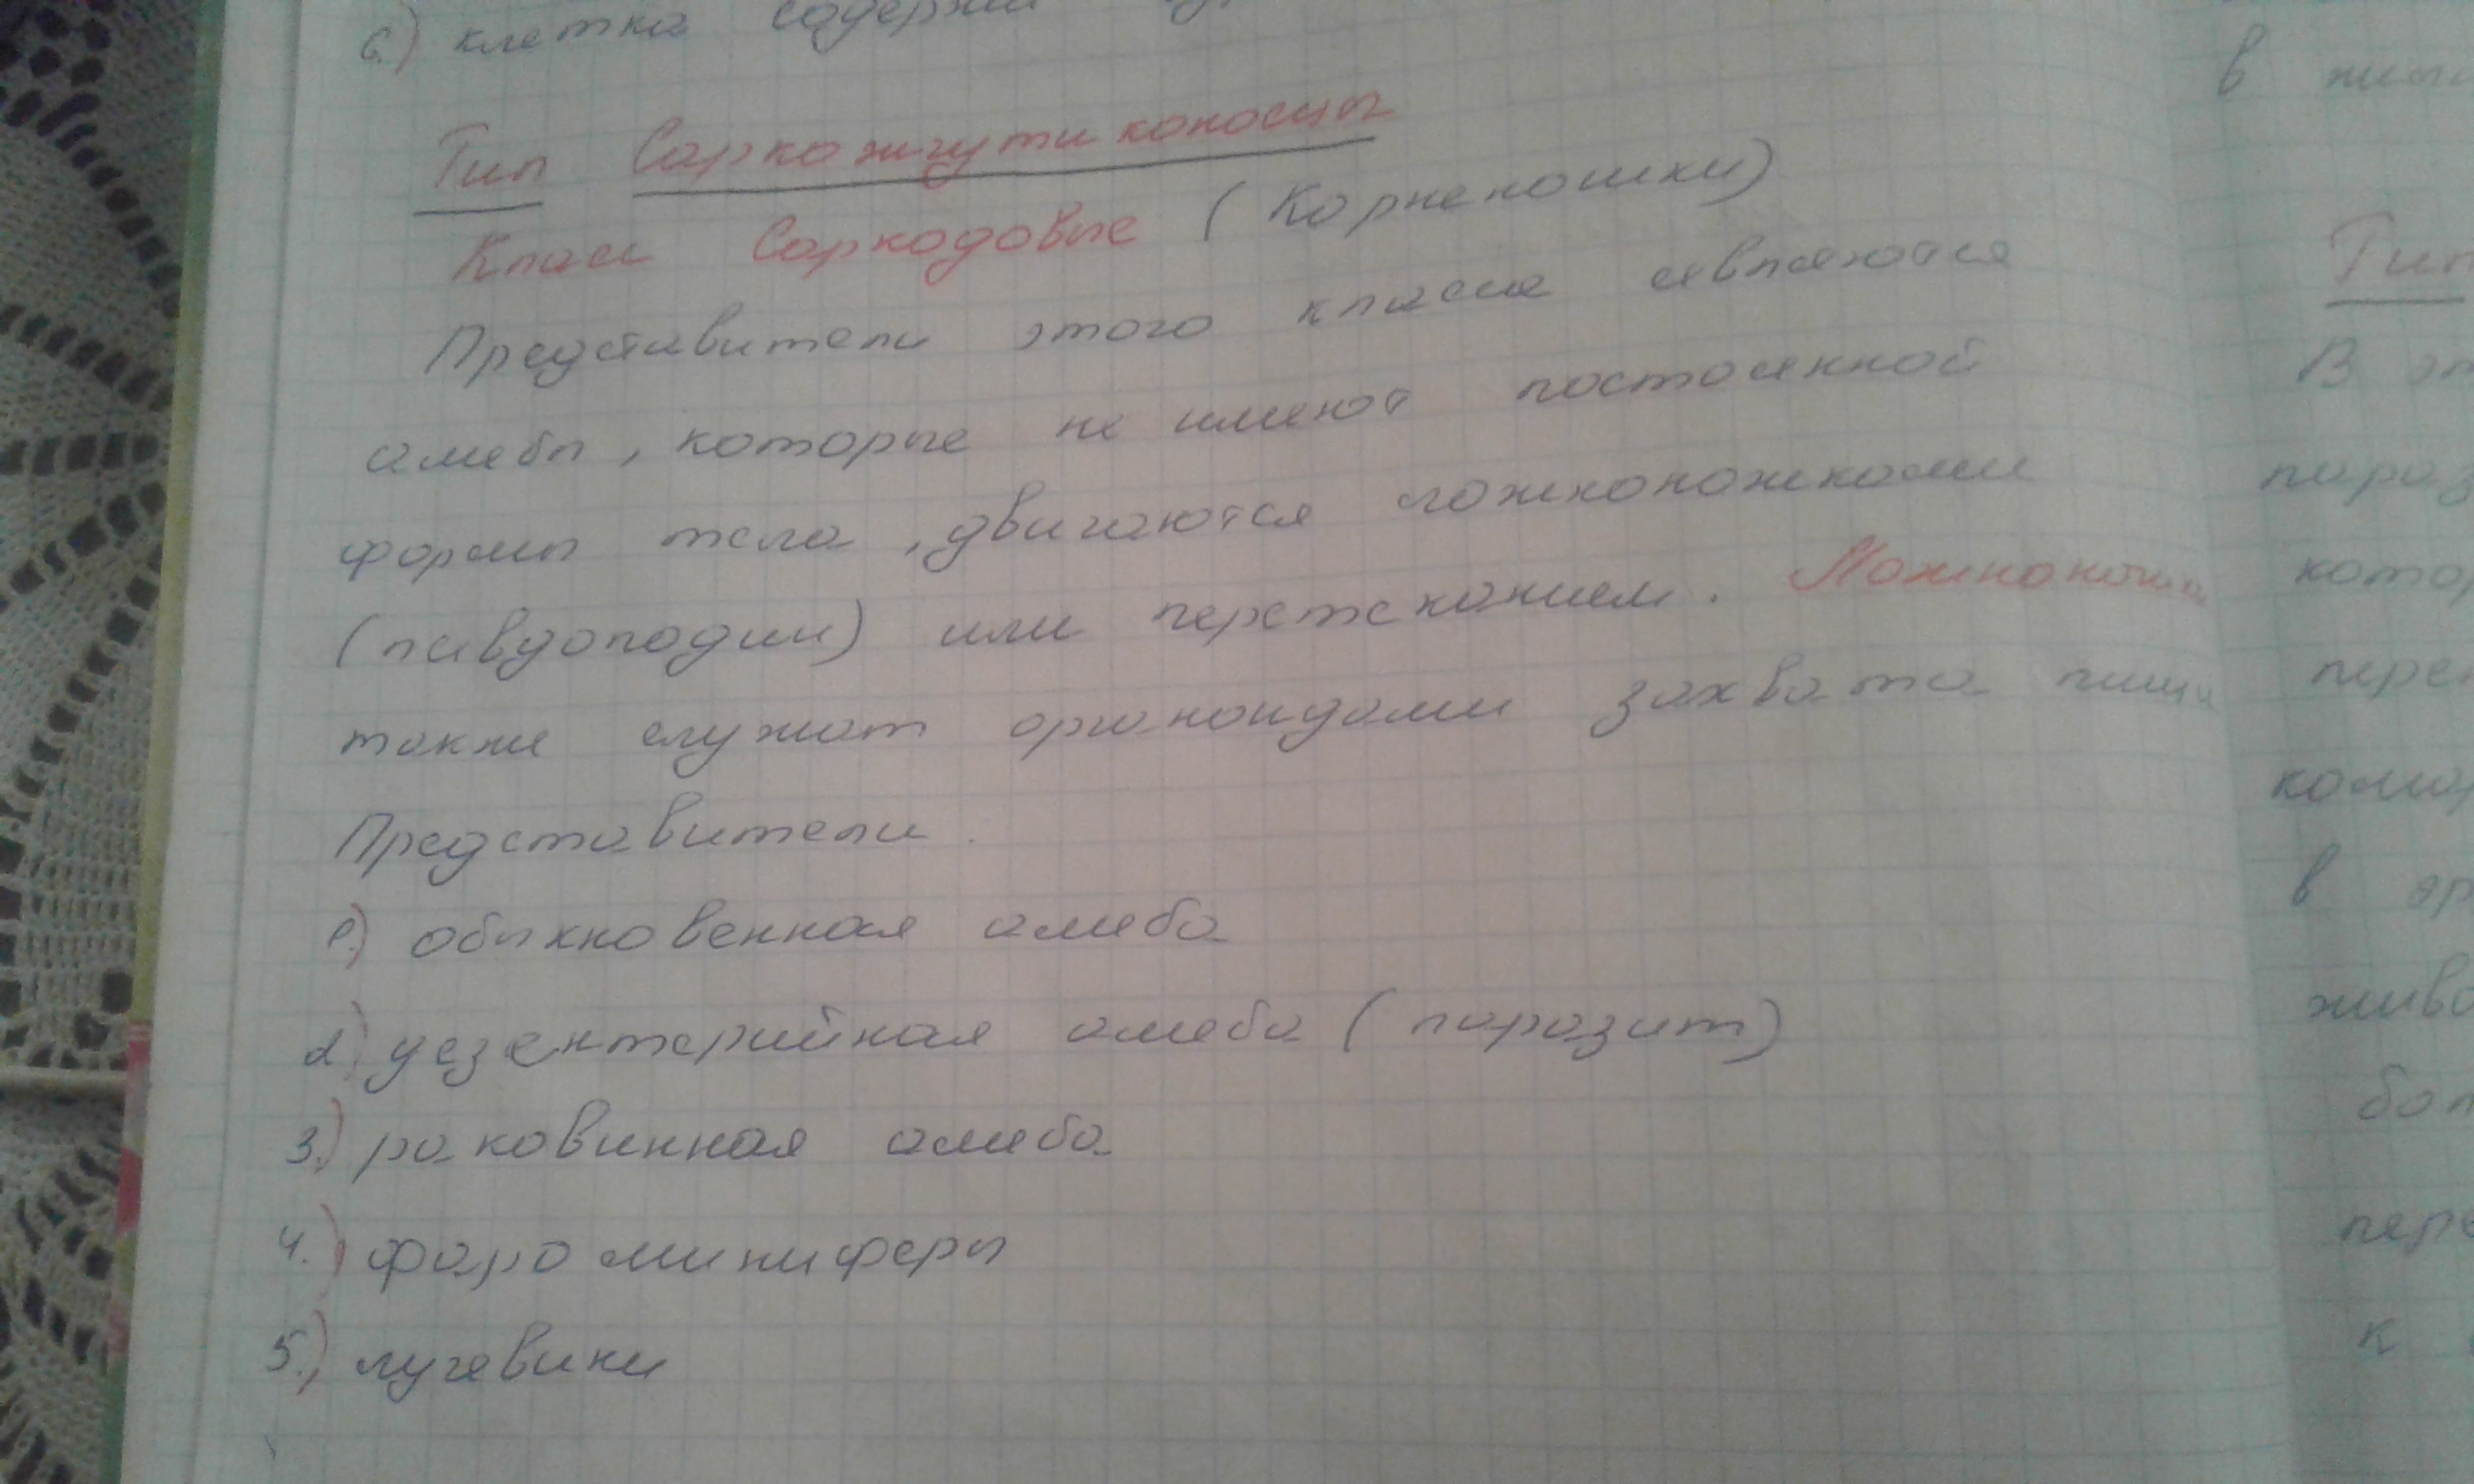 6.) клетка содержит
Тип Саркожгутиконосцы
Класс Саркодовые (Корненошки)
Представители этого класса являются
амебы, которые не имеют постоянной
формы тела, двигаются ложконожками
(псевдоподии) или перетеканием. Ложноножки
также служат органоидами захвата пищи
Представители.
1.) обыкновенная амеба
2.) дезентерийная амеба (паразит)
3.) раковинная амеба
4.) фораминиферы
5.) лучевики
в
Тип
В
к